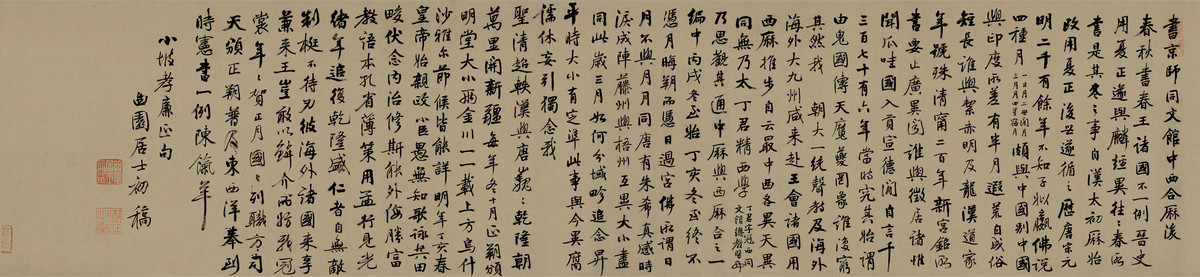 書京師同文館中西合厤後
春秋書春王諸國不一例晉史
用夏正遂與麟經異往往春而
書是其冬之事自漢太初厤始
改用夏正後世遵循之歷唐宋元
明二千有餘年不如子姒嬴佛說
四種月一日月二四閒月三月月四星宿月頗與中國別中國
與印度兩差有半月遐荒自成俗
短長誰與絜赤明及龍漢道家
年號殊清甯二百年新宮銘所
書要止廣異聞誰與徵居諸惟
聞爪哇國入貢宣德閒自言千
三百七十有六年當時究其始謂
由鬼國傳天魔夔罔象誰復窮
其然我朝大一統聲教及海外
海外大九州咸來赴王會諸國用
西厤推步自云最中西各異天異
同無乃太丁君精西學丁君字冠西同文館總教習
乃思觀其通中厤與西厤合之一
編中丙戌冬至始丁亥冬至終不
憑月晦朔而憑日過宮佛所謂日
月不與月月同唐有朱希真感時
淚成陣藤州與梧州互異大小盡
同此歲三月如何分域畛追念昇
平時大小有定準此事與今異腐
儒休妄引獨念我
聖清超軼漢與唐巍巍乾隆朝
萬里開新疆每年冬十月正朔頒
明堂大小兩金川一一戴上方烏什
沙雅尔節候皆能詳明年丁亥春
皇帝始親政小臣愚無知歌詠其田
畯伏念內治修斯能外侮勝富
教語本孔省薄策用孟行見光
緒年追復乾隆盛仁者自無敵
制梃不待刃彼海外諸國來享
兼來王豈敢以鱗介而妨我冠
裳年年賀正月國國列職方司
天頒正朔普及東西洋奉到
時憲書一例陳篚筐
小坡孝廉正句
曲園居士初稿